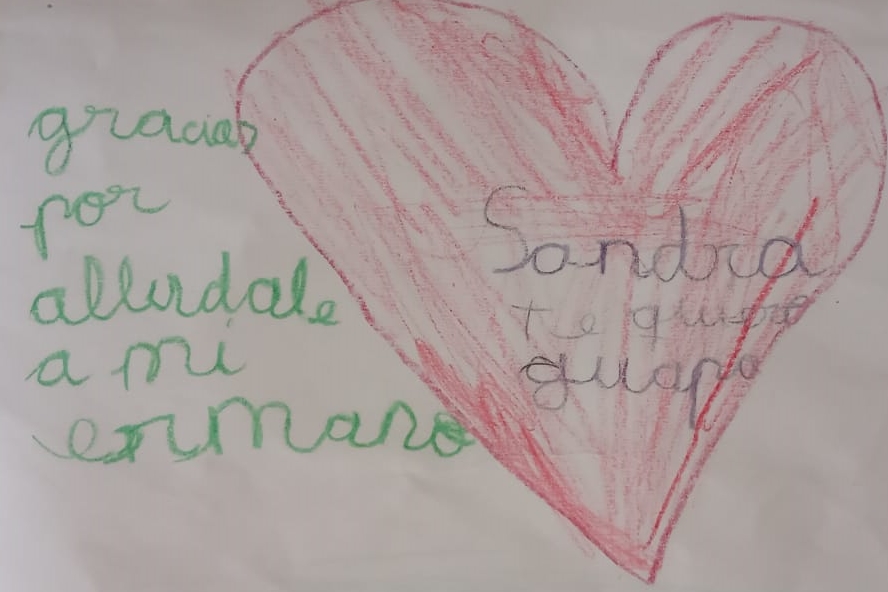 gracias
por
allurdale
a mi
ermano
Sandra
te quiero
guapa